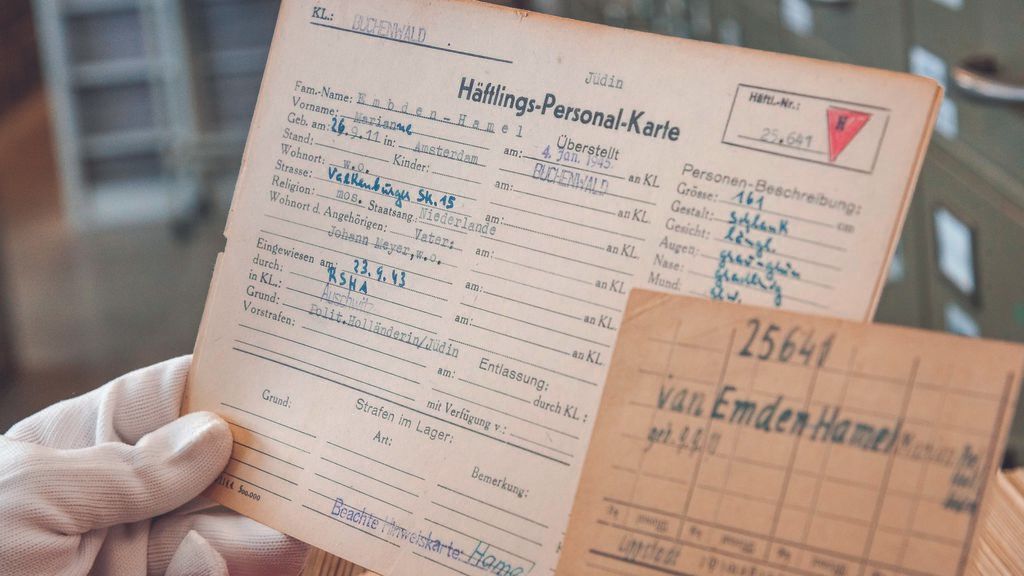 KL.: BUCHENWALD
Jüdin
Häftlings-Personal-Karte
Fam.-Name: Embden-Hamel
Vorname: Marianne
Geb. am: 26.9.11 in: Amsterdam
Stand: Kinder:
Wohnort: w.o.
Strasse: Valkenburger Sk. 15
Religion: mos. Staatsang. Niederlande
Wohnort d. Angehörigen: Vater:
Johann Meyer, w.o.
Eingewiesen am: 23.9.43
durch: RSHA
in KL.: Auschwitz
Grund: Polit. Holländerin/Jüdin
Vorstrafen:
Überstellt
am: 4. Jan. 1945 an KL
BUCHENWALD
am: an KL.
am: an KL.
am: an KL.
am: an KL.
am: an KL.
am: an KL.
Entlassung:
am: durch KL.:
mit Verfügung v.:
Häftl.-Nr.:
25.641
N
Personen-Beschreibung:
Grösse: 161 cm
Gestalt: schlank
Gesicht: längl.
Augen: graugrün
Nase: gradling
Mund:
Strafen im Lager:
Grund: Art: Bemerkung:
500.000
Beachte Hinweiskarte: Hamel
25641
van Emden Hamel
geb.
Lippstadt